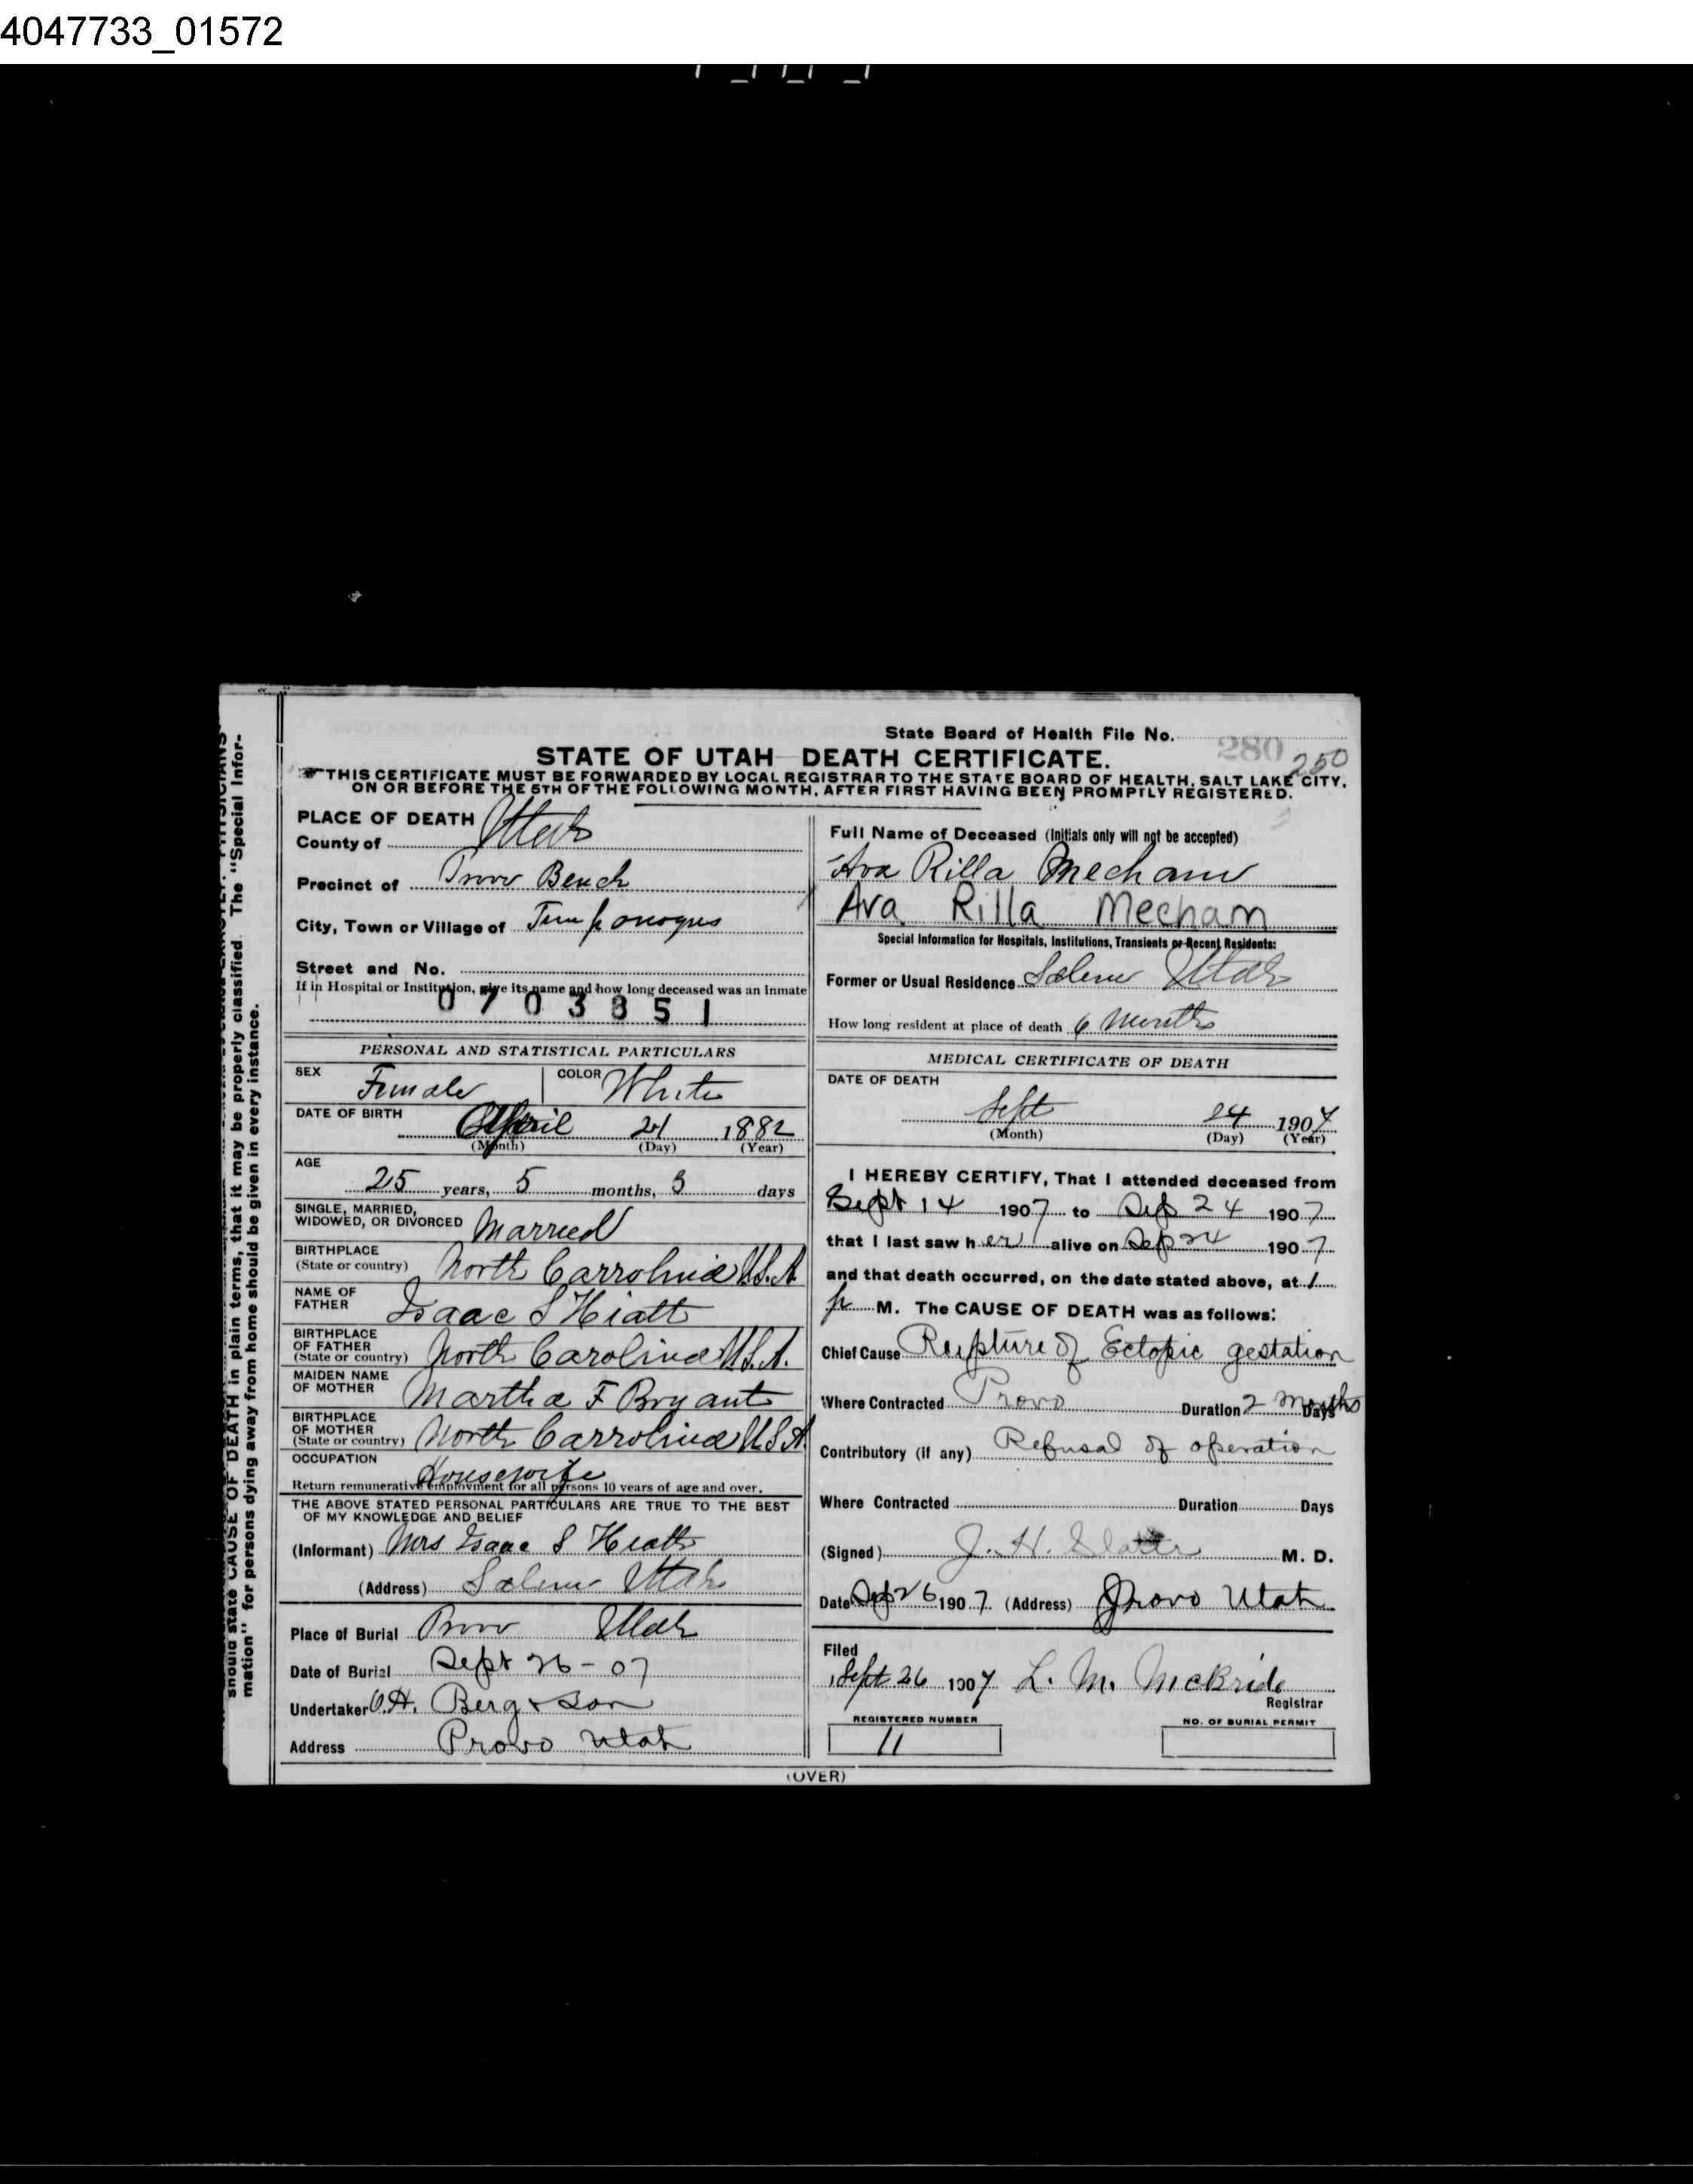 4047733_01572
State Board of Health File No. 280 250
STATE OF UTAH DEATH CERTIFICATE.
THIS CERTIFICATE MUST BE FORWARDED BY LOCAL REGISTRAR TO THE STATE BOARD OF HEALTH, SALT LAKE CITY,
ON OR BEFORE THE 5TH OF THE FOLLOWING MONTH, AFTER FIRST HAVING BEEN PROMPTLY REGISTERED.
should state CAUSE OF DEATH in plain terms, that it may be properly classified. The "Special Infor-
mation" for persons dying away from home should be given in every instance.
PLACE OF DEATH
County of Utah
Precinct of Provo Bench
City, Town or Village of Timpanogus
Street and No.
If in Hospital or Institution, give its name and how long deceased was an inmate
0703351
PERSONAL AND STATISTICAL PARTICULARS
SEX Female COLOR White
DATE OF BIRTH April 21 1882
(Month) (Day) (Year)
AGE
25 years, 5 months, 3 days
SINGLE, MARRIED,
WIDOWED, OR DIVORCED Married
BIRTHPLACE
(State or country) North Carrolina U.S.A
NAME OF
FATHER Isaac S Hiatt
BIRTHPLACE
OF FATHER
(State or country) North Carolina U.S.A.
MAIDEN NAME
OF MOTHER Martha F Bryant
BIRTHPLACE
OF MOTHER
(State or country) North Carrolina U S A
OCCUPATION Housewife
Return remunerative employment for all persons 10 years of age and over.
THE ABOVE STATED PERSONAL PARTICULARS ARE TRUE TO THE BEST
OF MY KNOWLEDGE AND BELIEF
(Informant) Mrs Isaac S Hiatt
(Address) Salem Utah
Place of Burial Provo Utah
Date of Burial Sept 26-07
Undertaker O.H. Berg & Son
Address Provo Utah
Full Name of Deceased (Initials only will not be accepted)
Ava Rilla Mecham
Ava Rilla Mecham
Special Information for Hospitals, Institutions, Transients or Recent Residents:
Former or Usual Residence Salem Utah
How long resident at place of death 6 Months
MEDICAL CERTIFICATE OF DEATH
DATE OF DEATH
Sept 24 1907
(Month) (Day) (Year)
I HEREBY CERTIFY, That I attended deceased from
Sept 14 1907 to Sep 24 1907
that I last saw her alive on Sep 24 1907
and that death occurred, on the date stated above, at 1
p M. The CAUSE OF DEATH was as follows:
Chief Cause Rupture of Ectopic gestation
Where Contracted Provo Duration 2 Months Days
Contributory (if any) Refusal of operation
Where Contracted Duration Days
(Signed) J. H. M. D.
Date Sep 26 1907 (Address) Provo Utah
Filed
Sept 26 1907 L. M. McBride
Registrar
REGISTERED NUMBER NO. OF BURIAL PERMIT
11
(OVER)